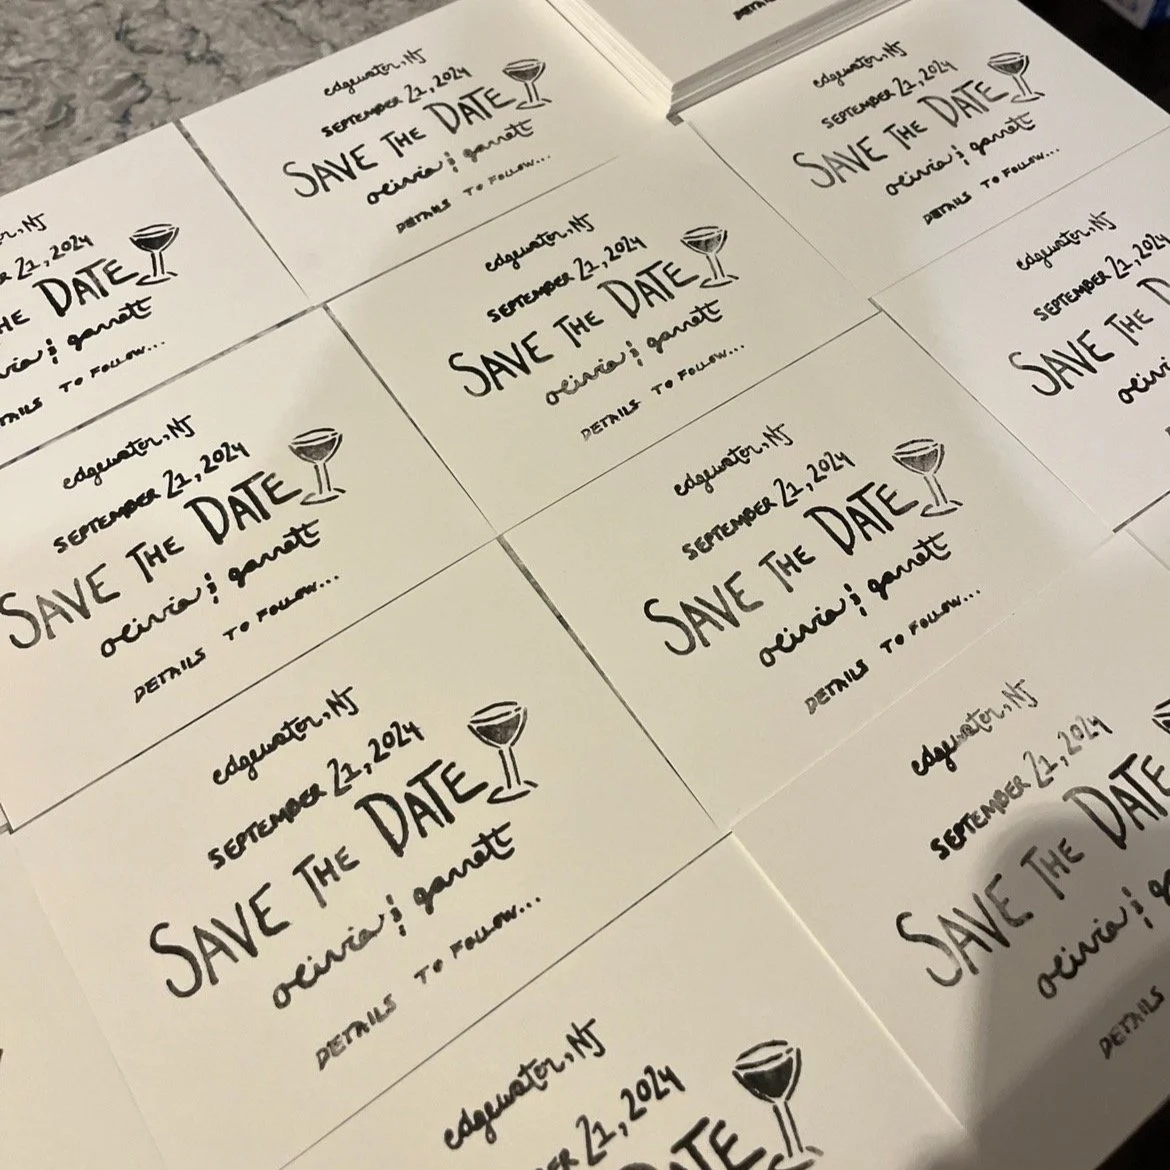 edgewater, NJ
SEPTEMBER 21, 2024
SAVE THE DATE
olivia & garrett
DETAILS TO FOLLOW...
edgewater, NJ
SEPTEMBER 21, 2024
SAVE THE DATE
olivia & garrett
DETAILS TO FOLLOW...
NJ
21, 2024
DATE
& garrett
TO FOLLOW...
edgewater, NJ
SEPTEMBER 21, 2024
SAVE THE DATE
olivia & garrett
DETAILS TO FOLLOW...
edgewater, NJ
SEPTEMBER 21, 2024
SAVE THE
edgewater, NJ
SEPTEMBER 21, 2024
SAVE THE DATE
olivia & garrett
DETAILS TO FOLLOW...
edgewater, NJ
SEPTEMBER 21, 2024
SAVE THE DATE
olivia & garrett
DETAILS TO FOLLOW...
edgewater, NJ
SEPTEMBER 21, 2024
SAVE THE DATE
olivia & garrett
DETAILS TO FOLLOW...
edgewater, NJ
SEPTEMBER 21, 2024
SAVE THE DATE
olivia &
DETAILS
edgewater, NJ
SEPTEMBER 21, 2024
DATE